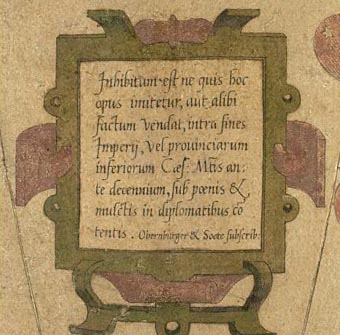 Inhibitum est ne quis hoc
opus imitetur, aut alibi
factum vendat, intra fines
Imperij, vel provinciarum
inferiorum Cæs: Mtis an-
te decennium, sub pœnis &
mulctis in diplomatibus co
tentis. Obernburger & Soete subscrib: